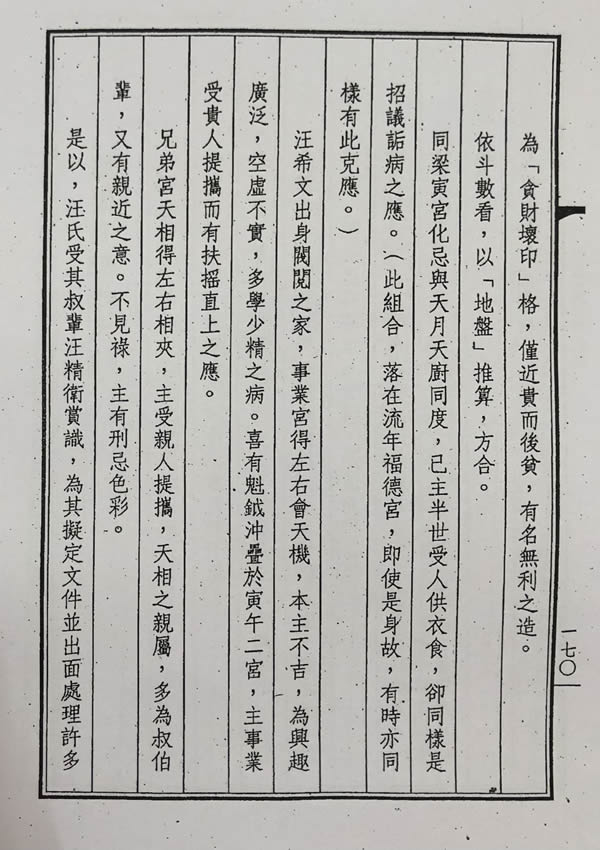 為「貪財壞印」格，僅近貴而後貧，有名無利之造。
依斗數看，以「地盤」推算，方合。
同梁寅宮化忌與天月天廚同度，已主半世受人供衣食，卻同樣是
招議詬病之應。（此組合，落在流年福德宮，即使是身故，有時亦同
樣有此克應。）
汪希文出身閥閱之家，事業宮得左右會天機，本主不吉，為興趣
廣泛，空虛不實，多學少精之病。喜有魁鉞沖疊於寅午二宮，主事業
受貴人提攜而有扶搖直上之應。
兄弟宮天相得左右相夾，主受親人提攜，天相之親屬，多為叔伯
輩，又有親近之意。不見祿，主有刑忌色彩。
是以，汪氏受其叔輩汪精衛賞識，為其擬定文件並出面處理許多
一七〇